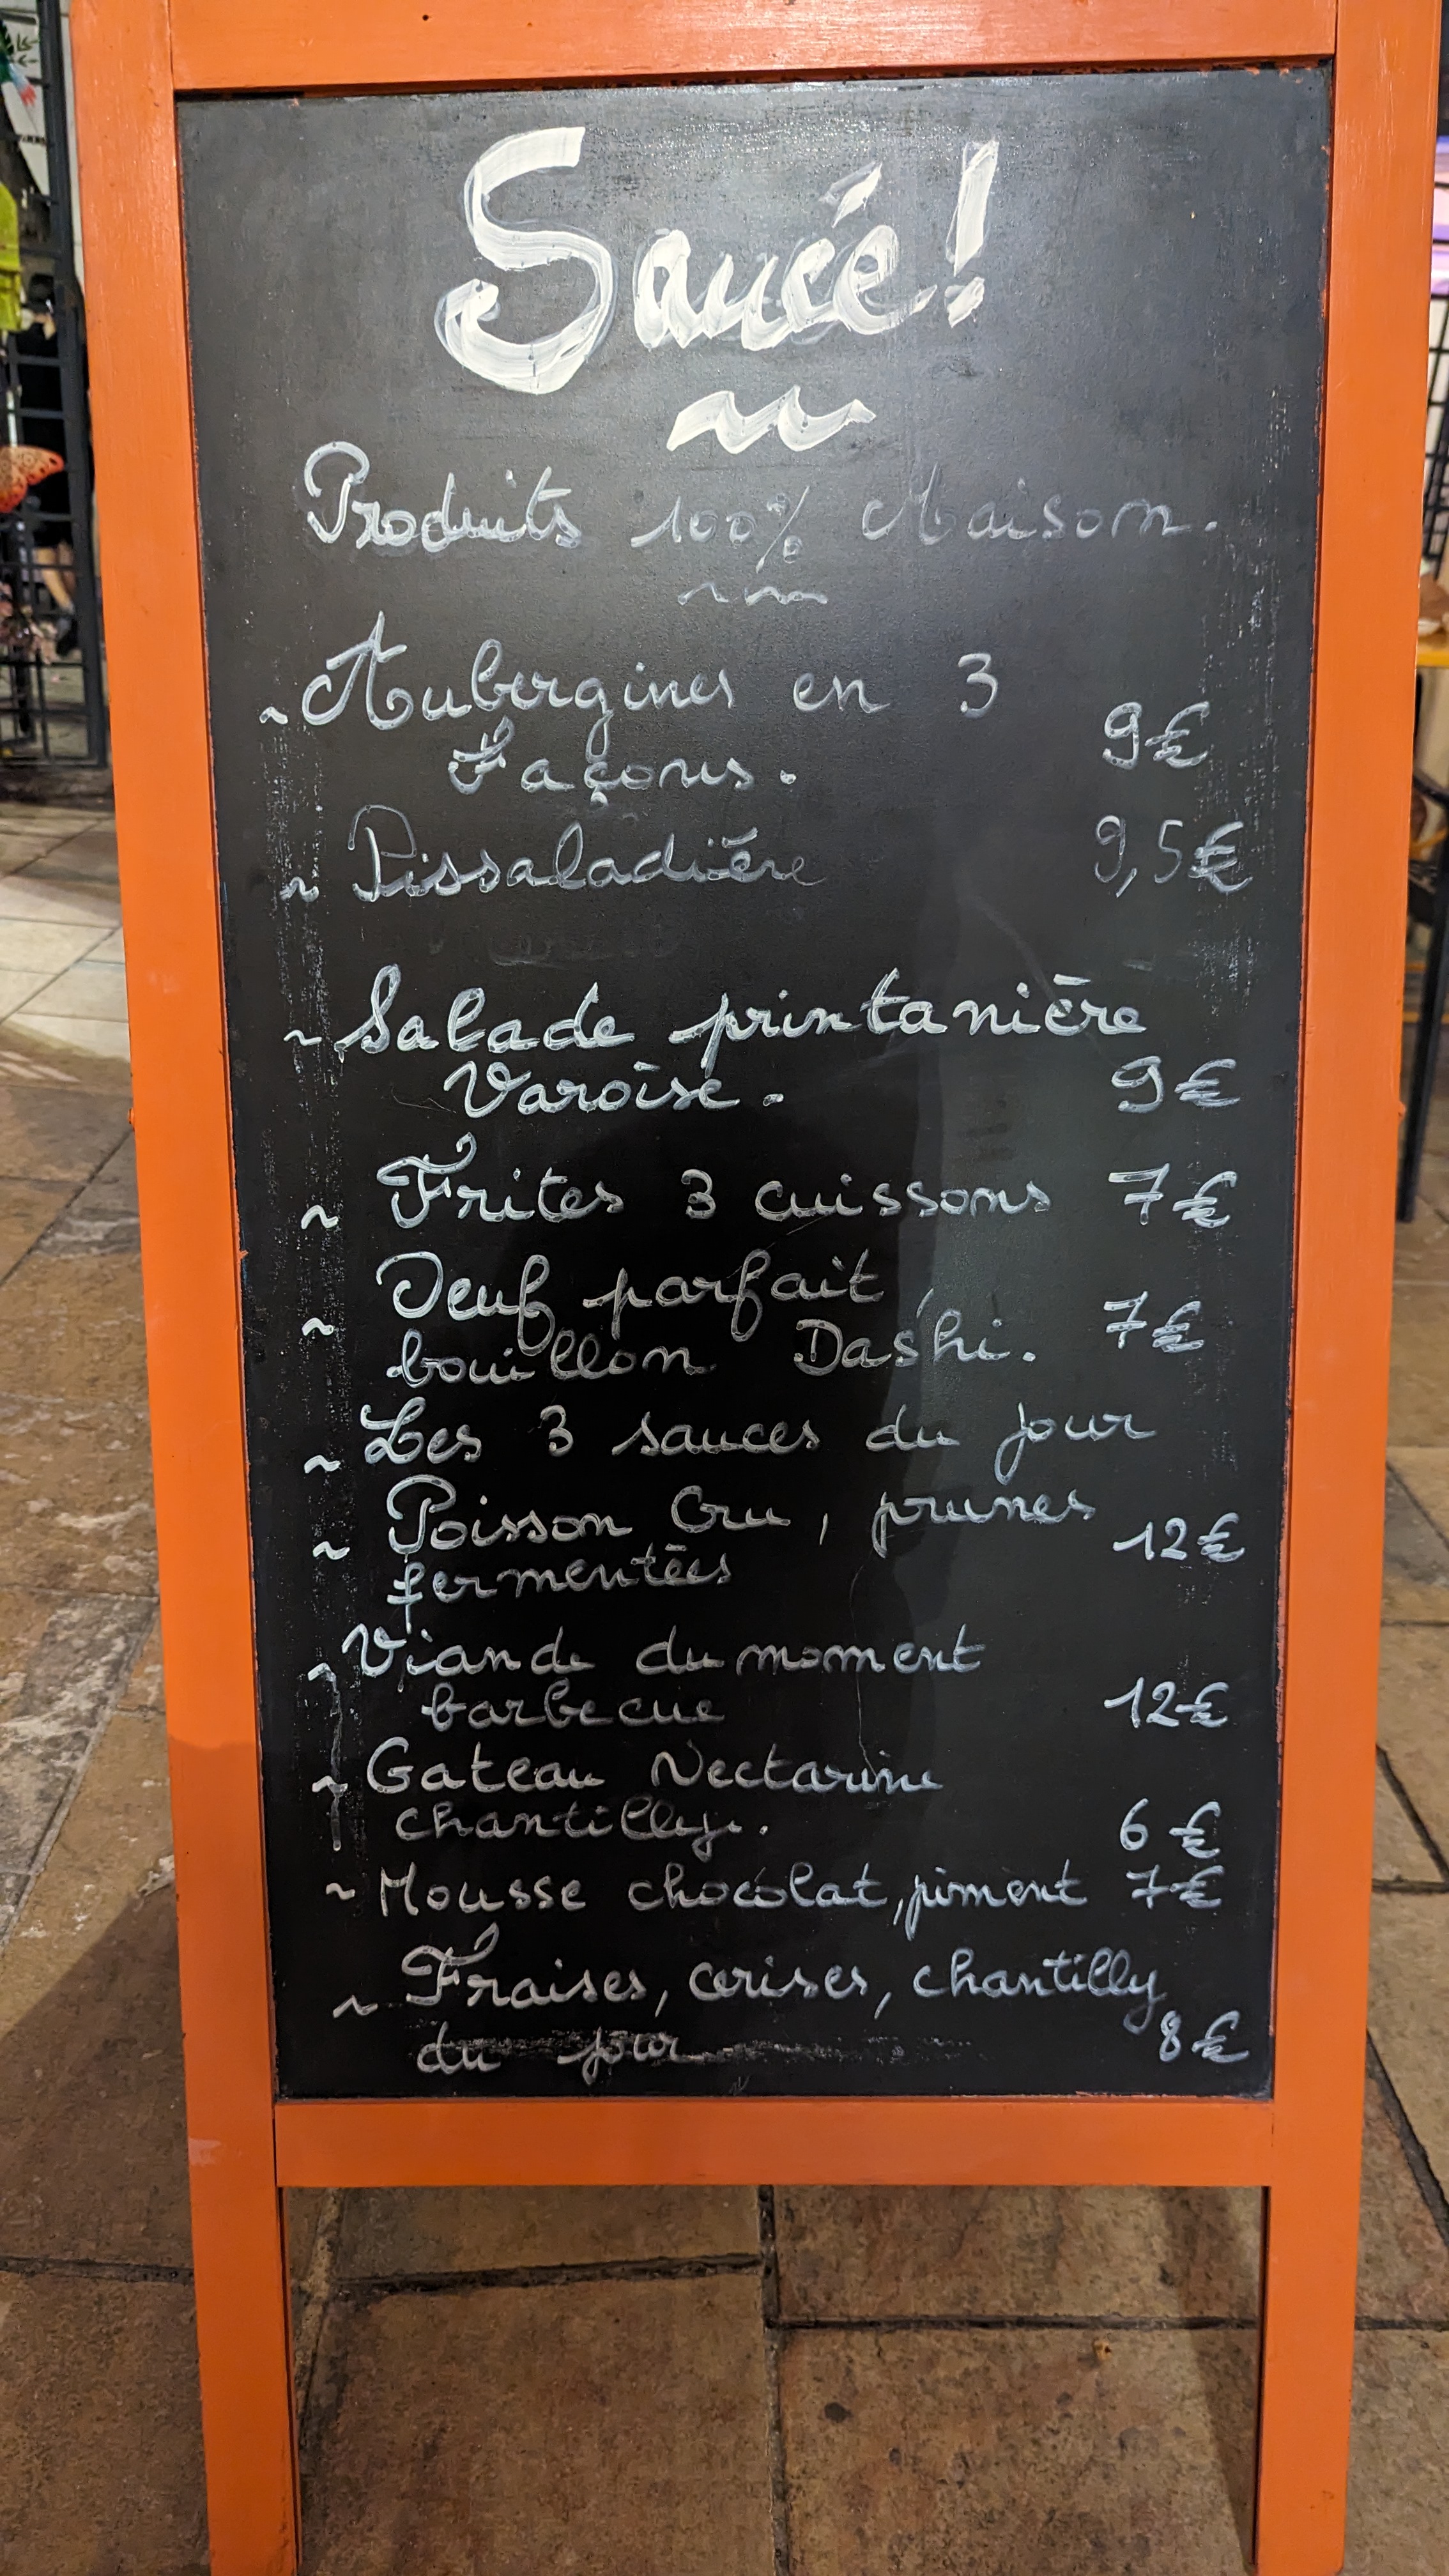 Saucé!
Produits 100% Maison.
~ Aubergines en 3
Façons. 9€
~ Pissaladière 9,5€
~ Salade printanière
Varoise. 9€
~ Frites 3 cuissons 7€
~ Oeuf parfait,
bouillon Dashi. 7€
~ Les 3 sauces du jour
~ Poisson Cru, prunes 12€
fermentées
~ Viande du moment
barbecue 12€
~ Gateau Nectarine
chantilly. 6€
~ Mousse chocolat, piment 7€
~ Fraises, cerises, chantilly
du jour 8€